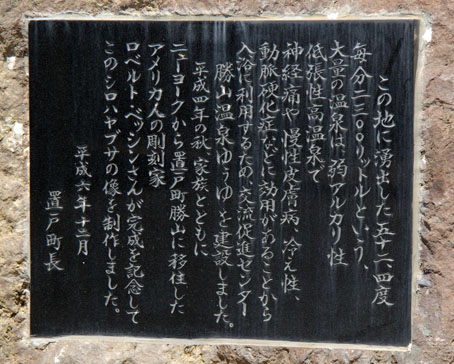 この地に湧出した五十二・四度
毎分二二〇〇リットルという、
大量の温泉は、弱アルカリ性
低張性高温泉で
神経痛や慢性皮膚病、冷え性、
動脈硬化症などに効用があることから
入浴に利用するため、交流促進センター
勝山温泉ゆうゆを建設しました。
平成四年の秋、家族とともに
ニューヨークから置戸町勝山に移住した
アメリカ人の彫刻家
ロベルト・ベッシンさんが完成を記念して
このシロハヤブサの像を制作しました。
平成六年十二月
置戸町長